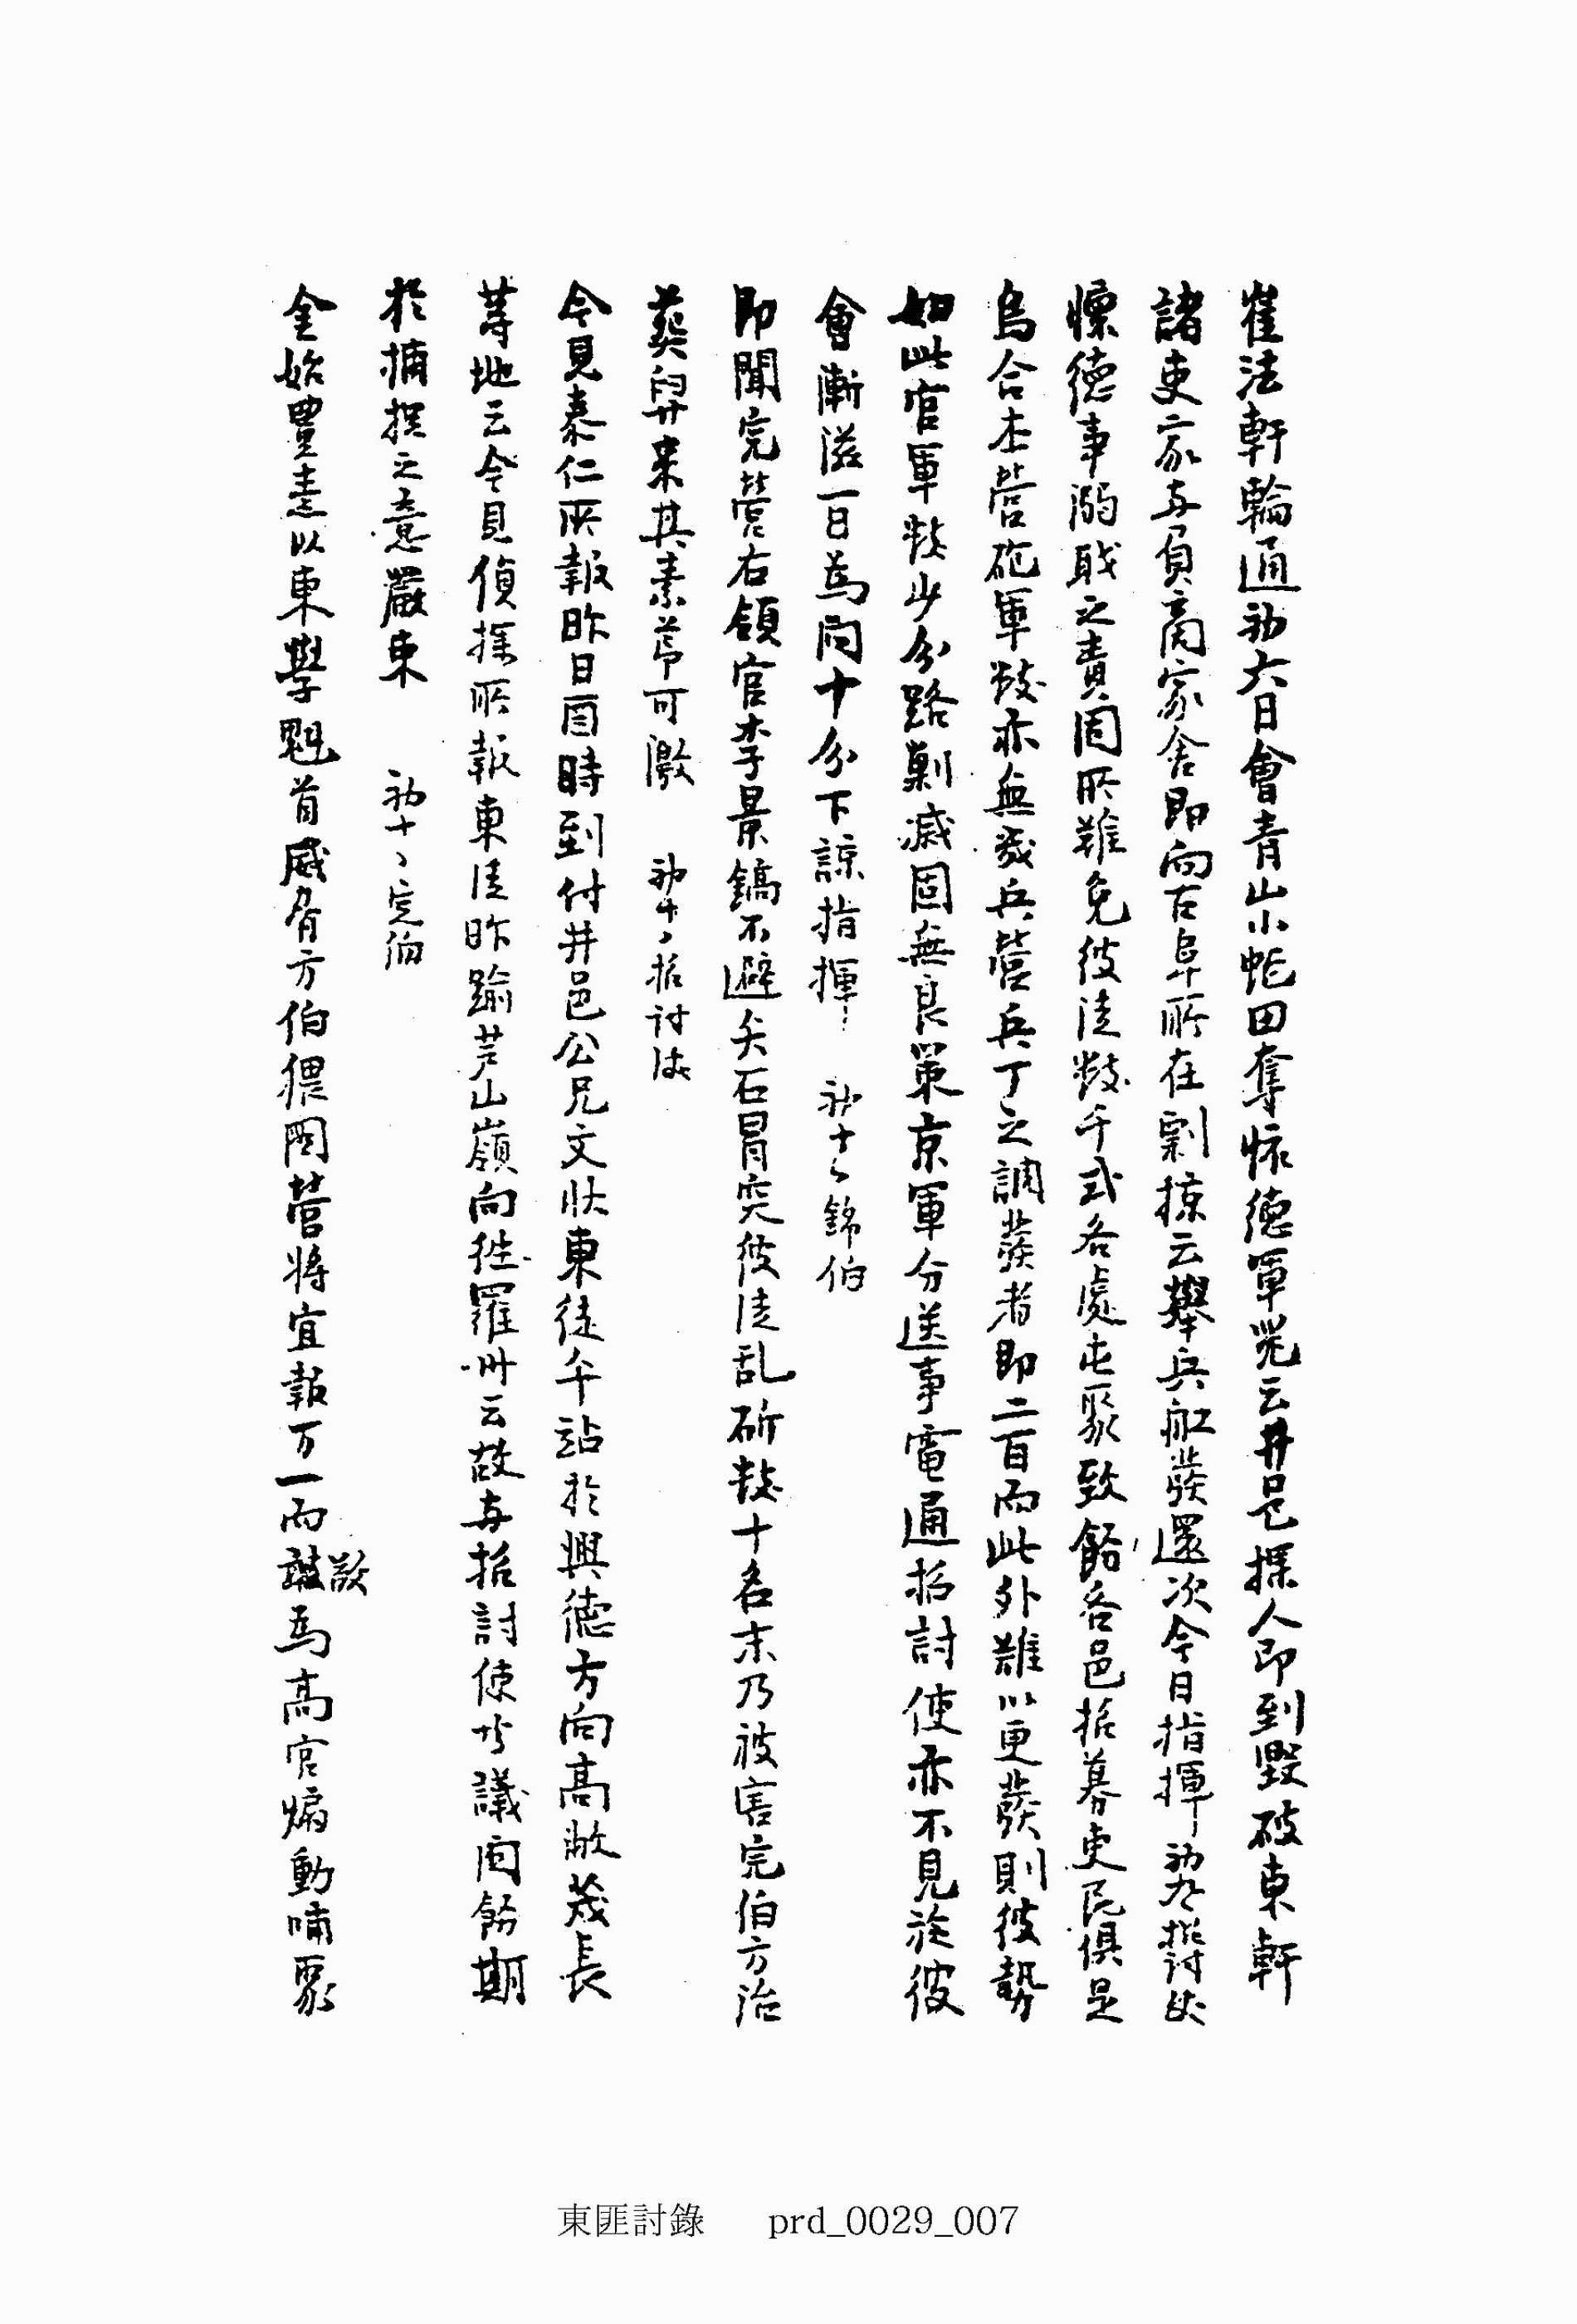 崔法軒輪通初六日會青山小蛇田奪懷德軍器云井邑探人卽到毁破東軒
諸吏家与負商家舍卽向古阜所在剽掠云擧兵船發還次今日指揮初九招討使
懍德事溺職之責固所難免彼徒數千式各處屯聚致餉各邑招募吏民俱是
烏合本營砲軍數亦無幾兵營兵丁之調發者卽二百而此外難以更發則彼勢
如此官軍數少分路剿滅固無良策京軍分送事電通招討使亦不見施彼
會漸滋一日爲向十分下諒指揮 初十 錦伯
卽聞完營右領官李景鎬不避矢石冒突彼徒乱斫數十名末乃被害完伯方治
葬舁來其素蓄可激 初十 招討使
今見泰仁所報昨日酉時到付井邑公兄文狀東徒午站於興德方向高敞茂長
等地云今見偵探所報東徒昨踰芦山嶺向往羅州云故与招討使爿議關飭期
於捕捉之意嚴束 初十 完伯
金始豊素以東學魁首威脅方伯猥囑營將宜報万一而敢爲高官煽動嘯聚